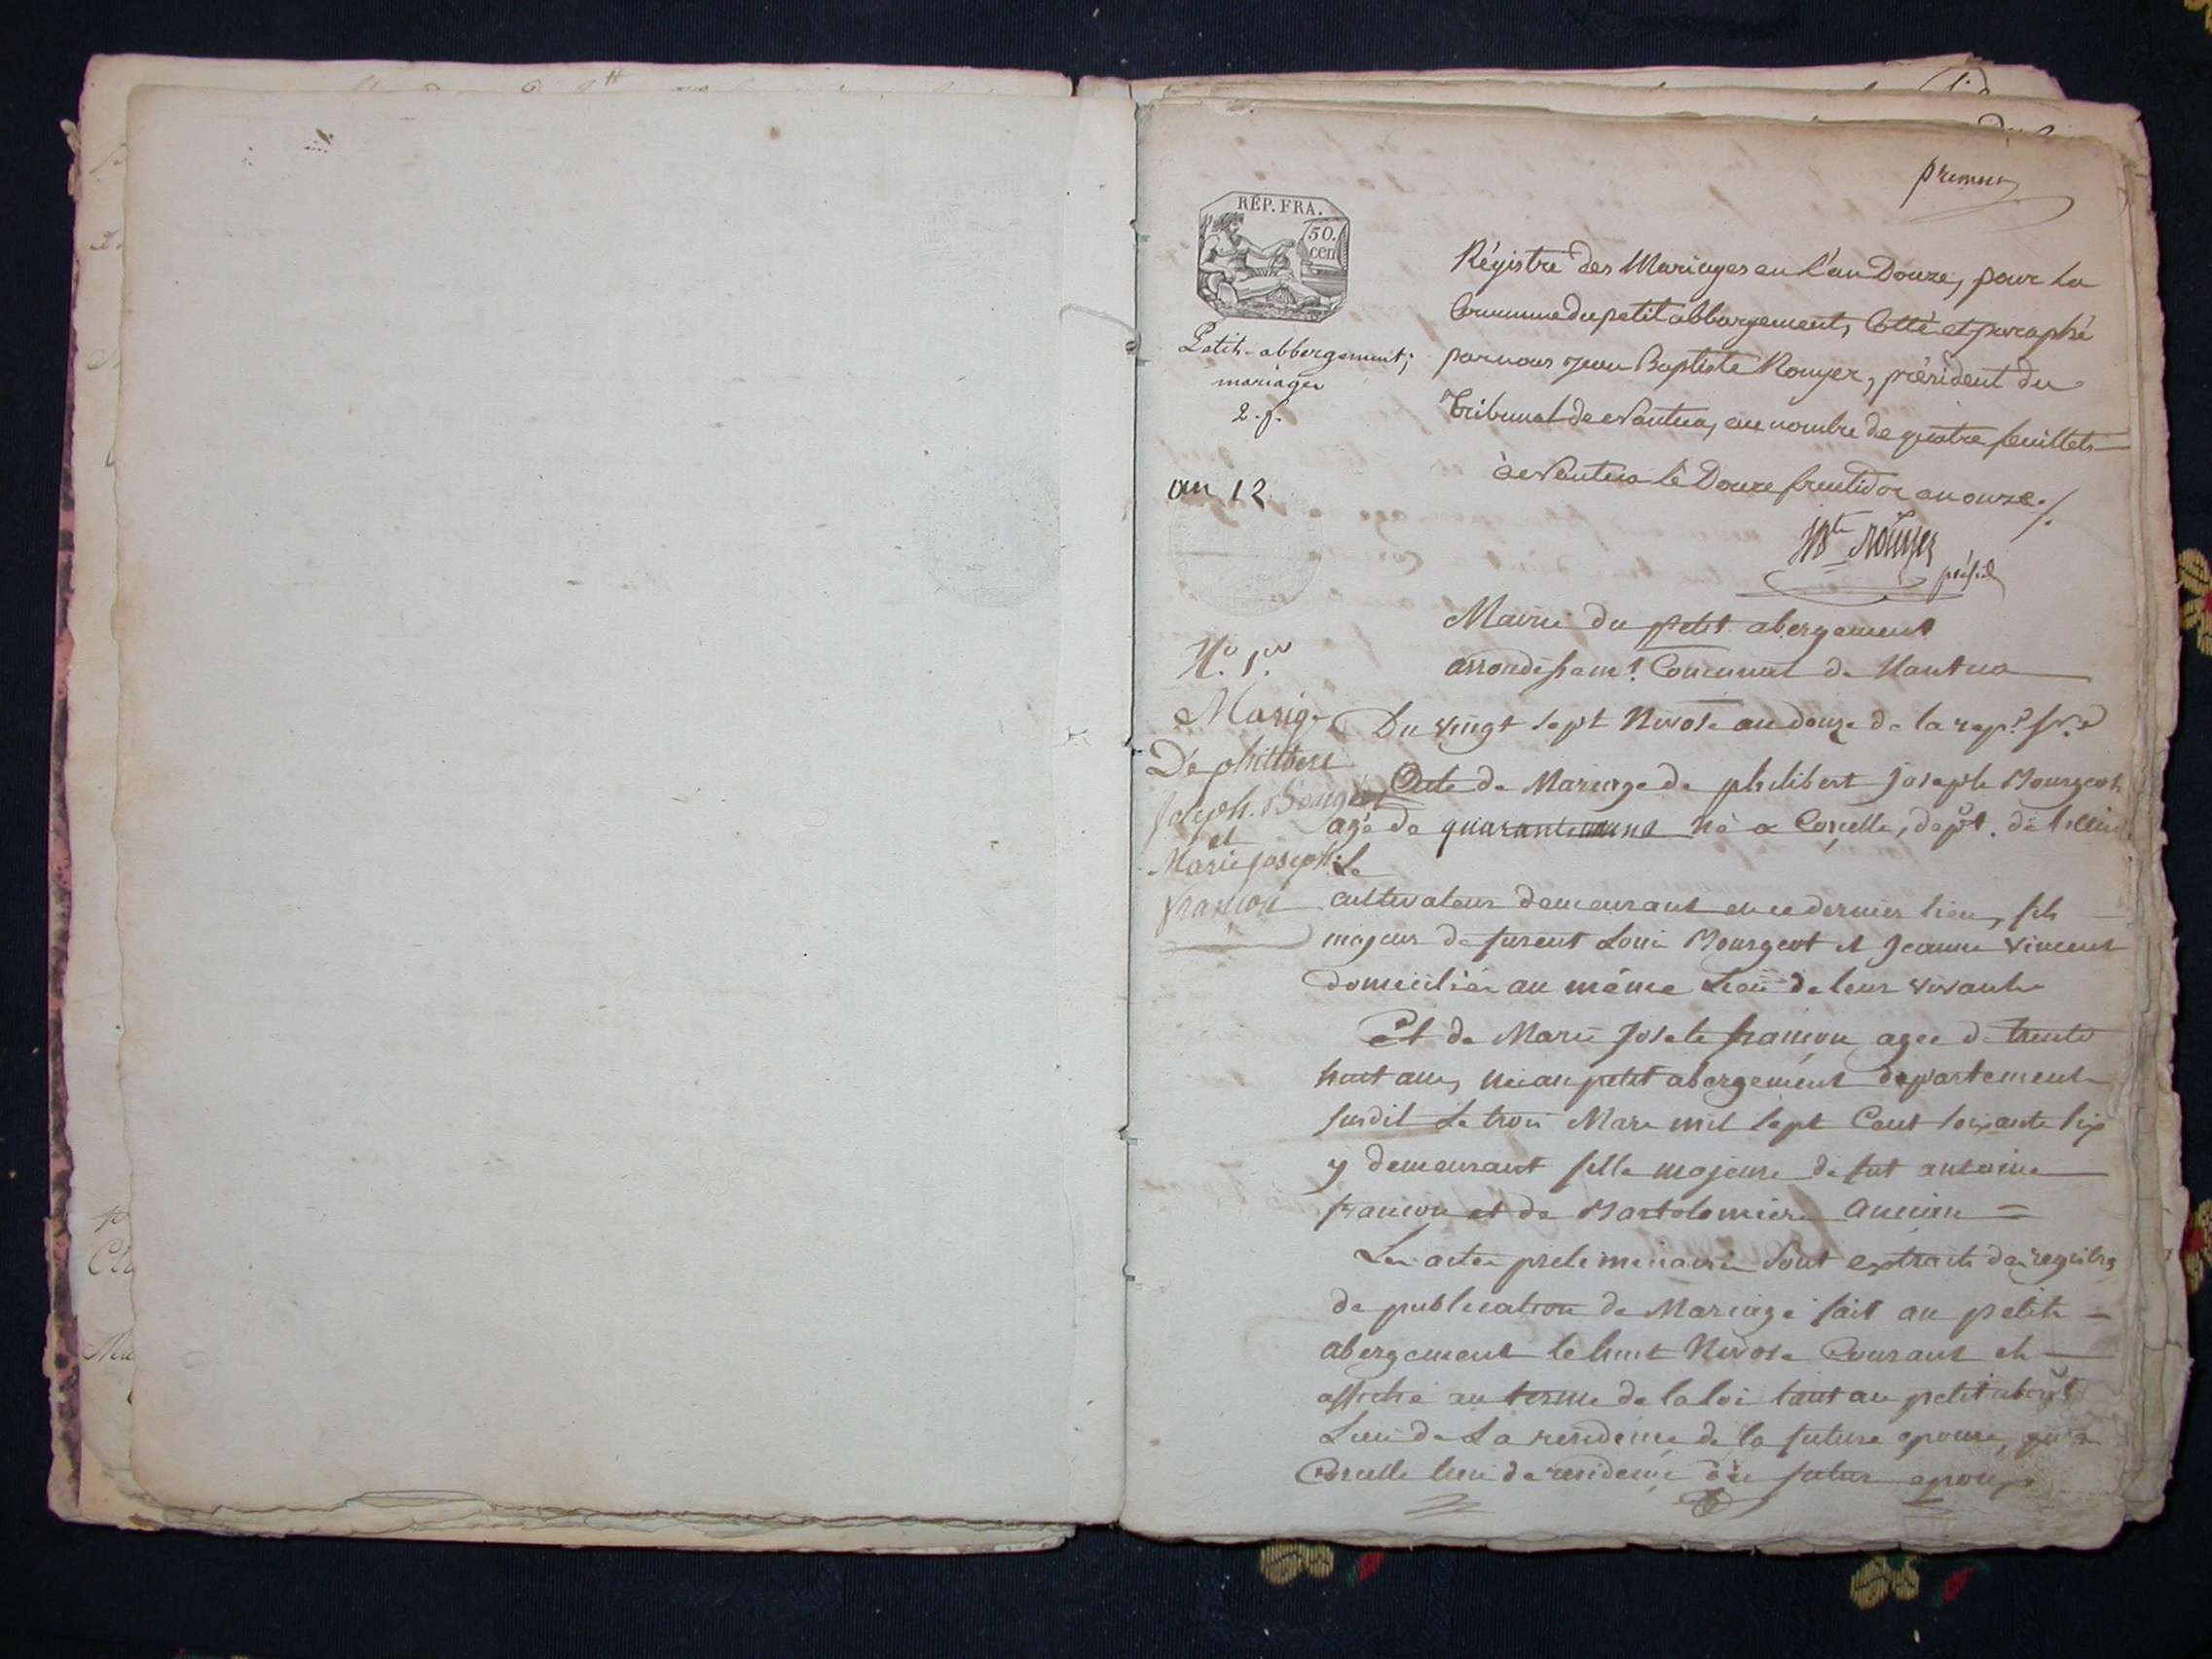 premier
RÉP. FRA.
50.
cen
Régistre des Mariages en l'an Douze, pour la
Commune du petit abbergement, Cotté et paraphé
par nous Jean Baptiste Rouyer, président du
Tribunal de Nantua, au nombre de quatre feuillets
à Nantua le Douze fructidor an onze ./.
Petit-abbergement;
mariages
2. f.
an 12
JBte Rouyer
présid
Mairie du petit abergement
arrondissemt. Communal de Nantua
N.o 1.er
Mariage
De philibert
Joseph Bourgeot
et
Marie joseph
françon
Du vingt sept Nivose an douze de la rep.e fr.e
Acte de Mariage de philibert joseph Bourgeot
agé de quarante né a Corcelle, dept. de l'ain
Le
cultivateur demeurant en ce dernier lieu, fils
majeur de furent Louis Bourgeot et Jeanne Vincent
domiciliés au même Lieu de leur vivant
Et de Marie Josete françon agée de trente
huit ans, née au petit abergement departement
susdit Le trois Mars mil sept Cent soixante six
y demeurant fille majeure de fut antoine
françon et de Bartolomiere Ancian =
Les actes preliminaires sont extraits des registres
de publication de Mariage fait au petit
abergement le huit Nivose Courant et
affiché au terme de la loi tant au petit aberg.t
Lieu de La residence de la future epouse, qu'a
Corcelle lieu de residence du futur epoux